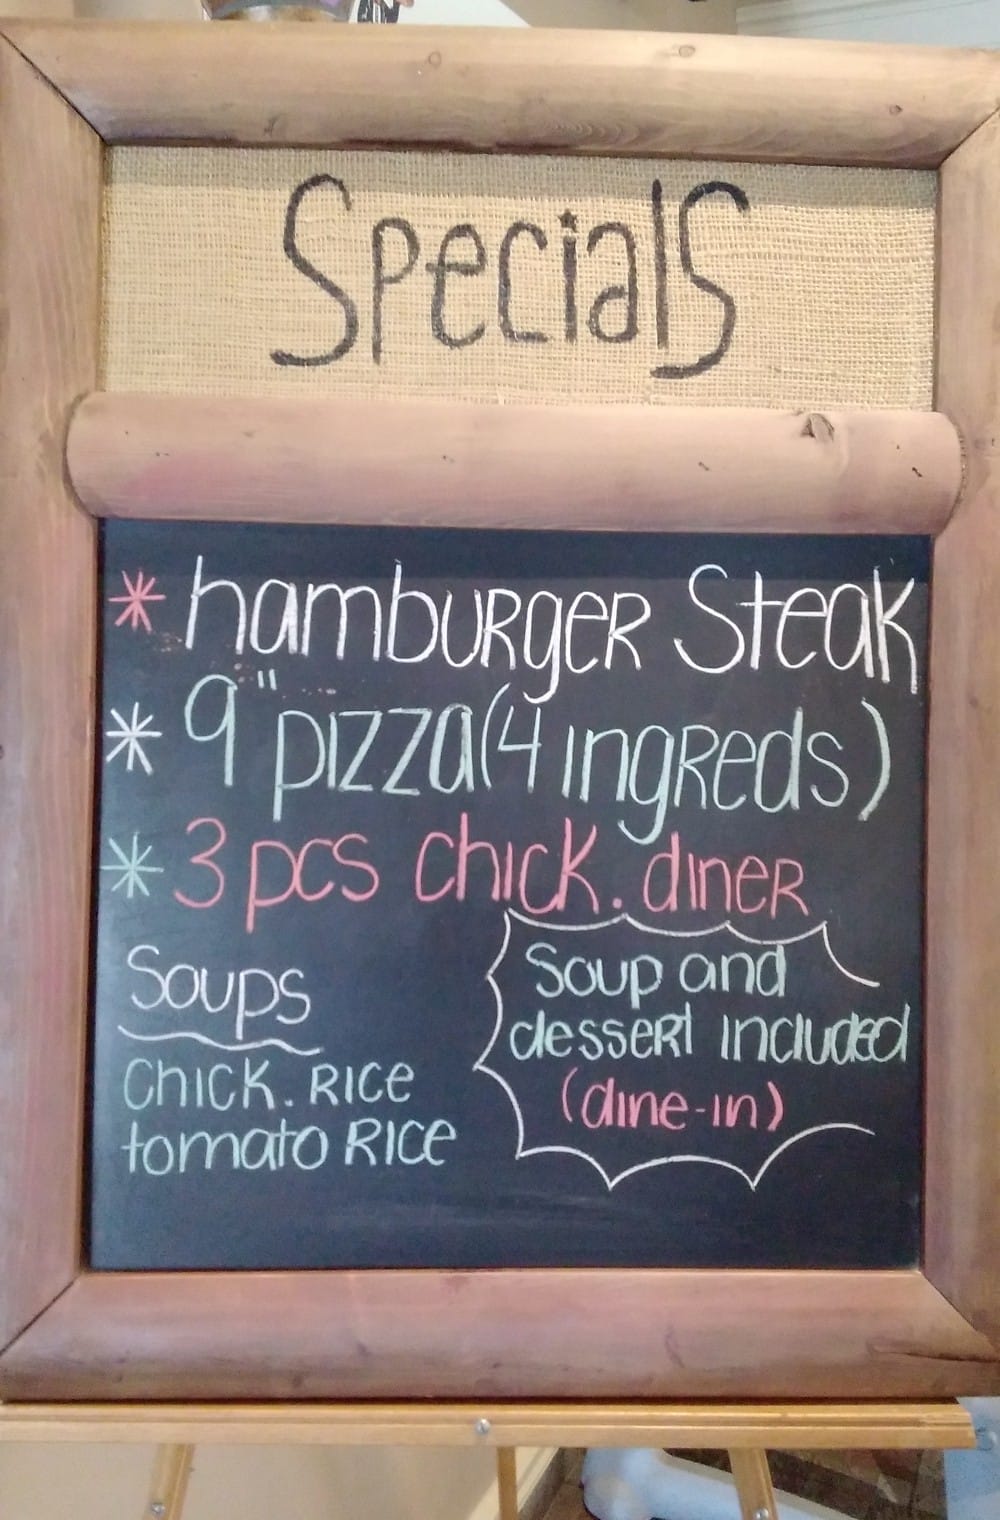 Specials
* hamburger Steak
* 9" pizza (4 ingreds)
* 3 pcs chick. diner
Soups
Chick. Rice
tomato Rice
Soup and
dessert included
(dine-in)